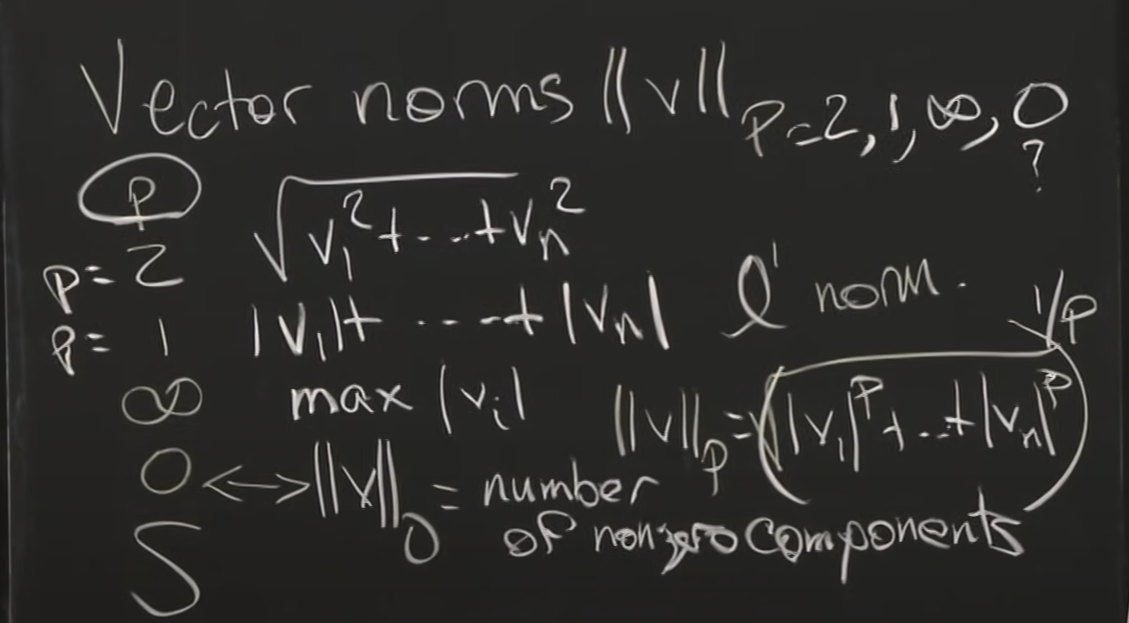 Vector norms ||v|| p=2,1,∞,0
?
p
p=2 √v₁²+...+vₙ²
p=1 |v₁|+...+|vₙ| l¹ norm.
∞ max |vᵢ| ||v||ₚ=(|v₁|ᵖ+...+|vₙ|ᵖ)^1/p
0 ↔ ||v||₀ = number
of nonzero components
S